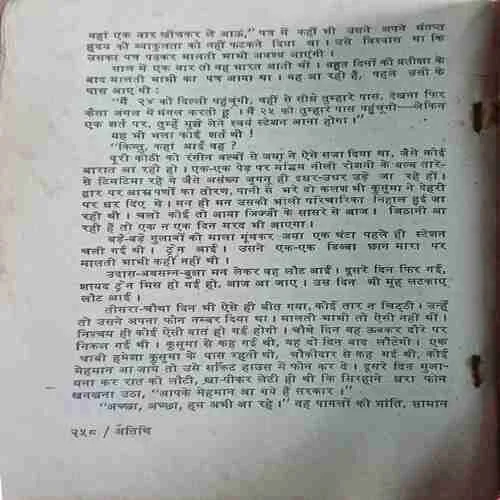 वहां एक बार खींचकर ले आऊं," पत्र में कहीं भी उसने अपने संतप्त
हृदय की व्याकुलता को नहीं फटकने दिया था। उसे विश्वास था कि
उसका पत्र पढ़कर मालती भाभी अवश्य आएंगी।
साल में एक बार तो वह भारत आती थीं। बहुत दिनों की प्रतीक्षा के
बाद मालती भाभी का पत्र आया था। वह आ रही हैं, पहले उसी के
पास आए थी :
"मैं २४ को दिल्ली पहुंचूंगी, वहीं से सीधे तुम्हारे पास, देखना फिर
कैसा जंगल में मंगल करती हूं। मैं २५ को तुम्हारे पास पहुंचूंगी—लेकिन
एक शर्त पर, तुम्हें मुझे लेने स्वयं स्टेशन आना होगा।"
यह भी भला कोई शर्त थी!
"किन्तु, कहां आई वह?
पूरी कोठी को रंगीन बल्बों से जया ने ऐसे सजा दिया था, जैसे कोई
बारात आ रही हो। एक-एक पेड़ पर मद्धिम नीली रोशनी के बल्ब तारों-
से टिमटिमा रहे थे जैसे असंख्य जुगनू ही इधर-उधर उड़े जा रहे हों।
द्वार पर आम्र पर्णों का तोरण, पानी से भरे दो कलश भी कुसुमा ने देहरी
पर धर दिए थे। मन ही मन उसकी भोली परिचारिका निहाल हुई जा
रही थी। चलो कोई तो आया जिज्जी के सासरे से आज। जिठानी आ
रही हैं तो एक न एक दिन मरद भी आएगा।
बड़े-बड़े गुलाबों की माला गूंथकर जया एक घंटा पहले ही स्टेशन
चली गई थी। ट्रेन आई। उसने एक-एक डिब्बा छान मारा पर
मालती भाभी कहीं नहीं थीं।
उदास-अवसन्न-बुझा मन लेकर वह लौट आई। दूसरे दिन फिर गई,
शायद ट्रेन मिस हो गई हो, आज आ जाए। उस दिन भी मुंह लटकाए
लौट आई।
तीसरा-चौथा दिन भी ऐसे ही बीत गया, कोई तार न चिट्ठी। उन्हें
तो उसने अपना फोन नम्बर दिया था। मालती भाभी तो ऐसी नहीं थीं।
निश्चय ही कोई ऐसी बात हो गई होगी। चौथे दिन वह ऊबकर दौरे पर
निकल गई थी। कुसुमा से कह गई थी, वह दो दिन बाद लौटेगी। एक
चाबी हमेशा कुसुमा के पास रहती थी, चौकीदार से कह गई थी, कोई
मेहमान आ जाये तो उसे सर्किट हाउस में फोन कर दे। दूसरे दिन मुआ-
यना कर रात को लौटी, खा-पीकर लेटी ही थी कि सिरहाने धरा फोन
खनखना उठा, "आपके मेहमान आ गये हैं सरकार।"
"अच्छा, अच्छा, हम अभी आ रहे।" वह पागलों की भांति, सामान
२५८ / अतिथि